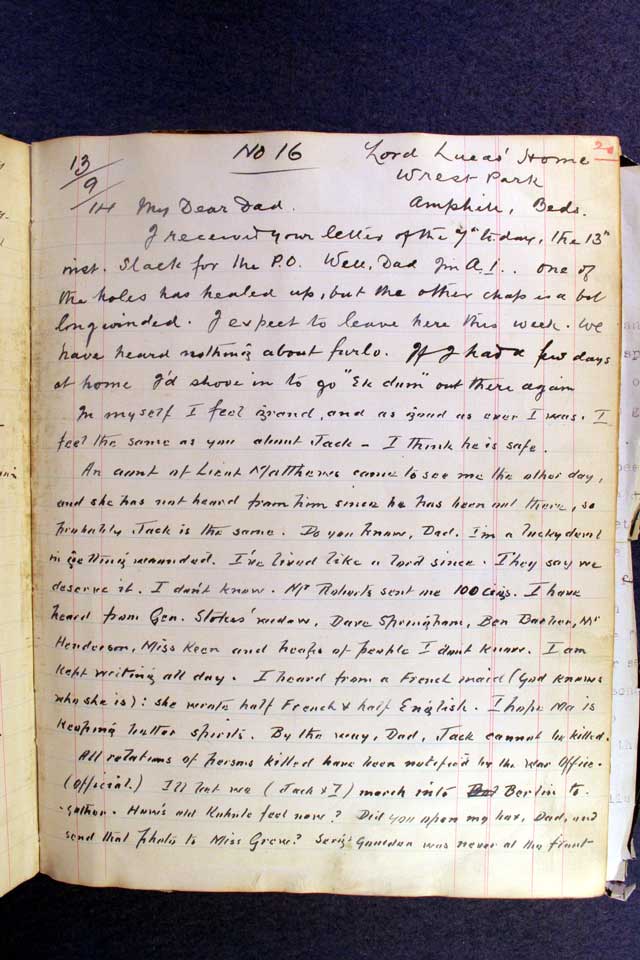 13/9/14 No 16 Lord Lucas' Home 2
Wrest Park
My Dear Dad. Ampthill, Beds.
I received your letter of the 7th today, the 13th
inst. Slack for the P.O. Well, Dad I'm A.1.. one of
the holes has healed up, but the other chap is a bit
longwinded. I expect to leave here this week. We
have heard nothing about furlo. If I had a few days
at home I'd shove in to go "Ek dum" out there again
In myself I feel grand, and as good as ever I was. I
feel the same as you about Jack – I think he is safe.
An aunt of Lieut Matthews came to see me the other day,
and she has not heard from him since he has been out there, so
probably Jack is the same. Do you know, Dad. I'm a lucky devil
in getting wounded. I've lived like a lord since. They say we
deserve it. I don't know. Mr Roberts sent me 100 cigs. I have
heard from Gen. Stokes' widow, Dave Springham, Ben Barber, Mr
Henderson, Miss Keen and heaps of people I don't know. I am
kept writing all day. I heard from a French maid (God knows
who she is): she wrote half French & half English. I hope Ma is
keeping better spirits. By the way, Dad, Jack cannot be killed.
All relations of persons killed have been notified by the War Office.
(Official.) I'll bet we (Jack & I) march into Berlin to-
-gether. How's old Kuhule feel now? Did you open my box, Dad, and
send that photo to Miss Grew? Sergt was never at the front-